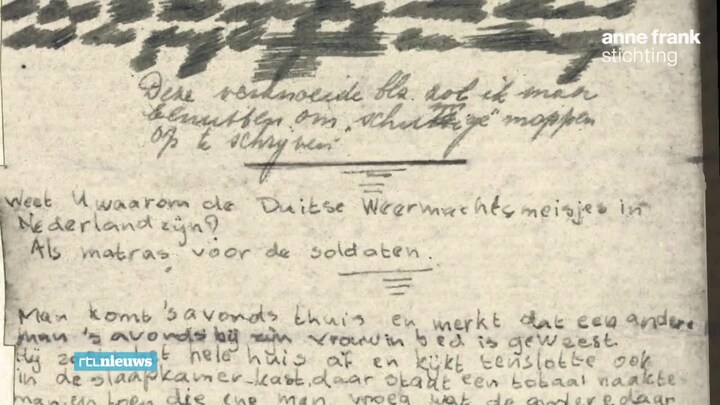 anne frank
stichting
Deze verknoeide blz. zal ik maar
benutten om "schuttige" moppen
op te schrijven
Weet U waarom de Duitse Weermachtsmeisjes in
Nederland zijn?
Als matras voor de soldaten.
Man komt 's avonds thuis en merkt dat een andere
man 's avonds bij zijn vrouw in bed is geweest.
Hij hele huis af en kijkt tenslotte ook
in de slaapkamer-kast, daar staat een totaal naakte
man, en toen die ene man vroeg wat de andere daar
rtl nieuws